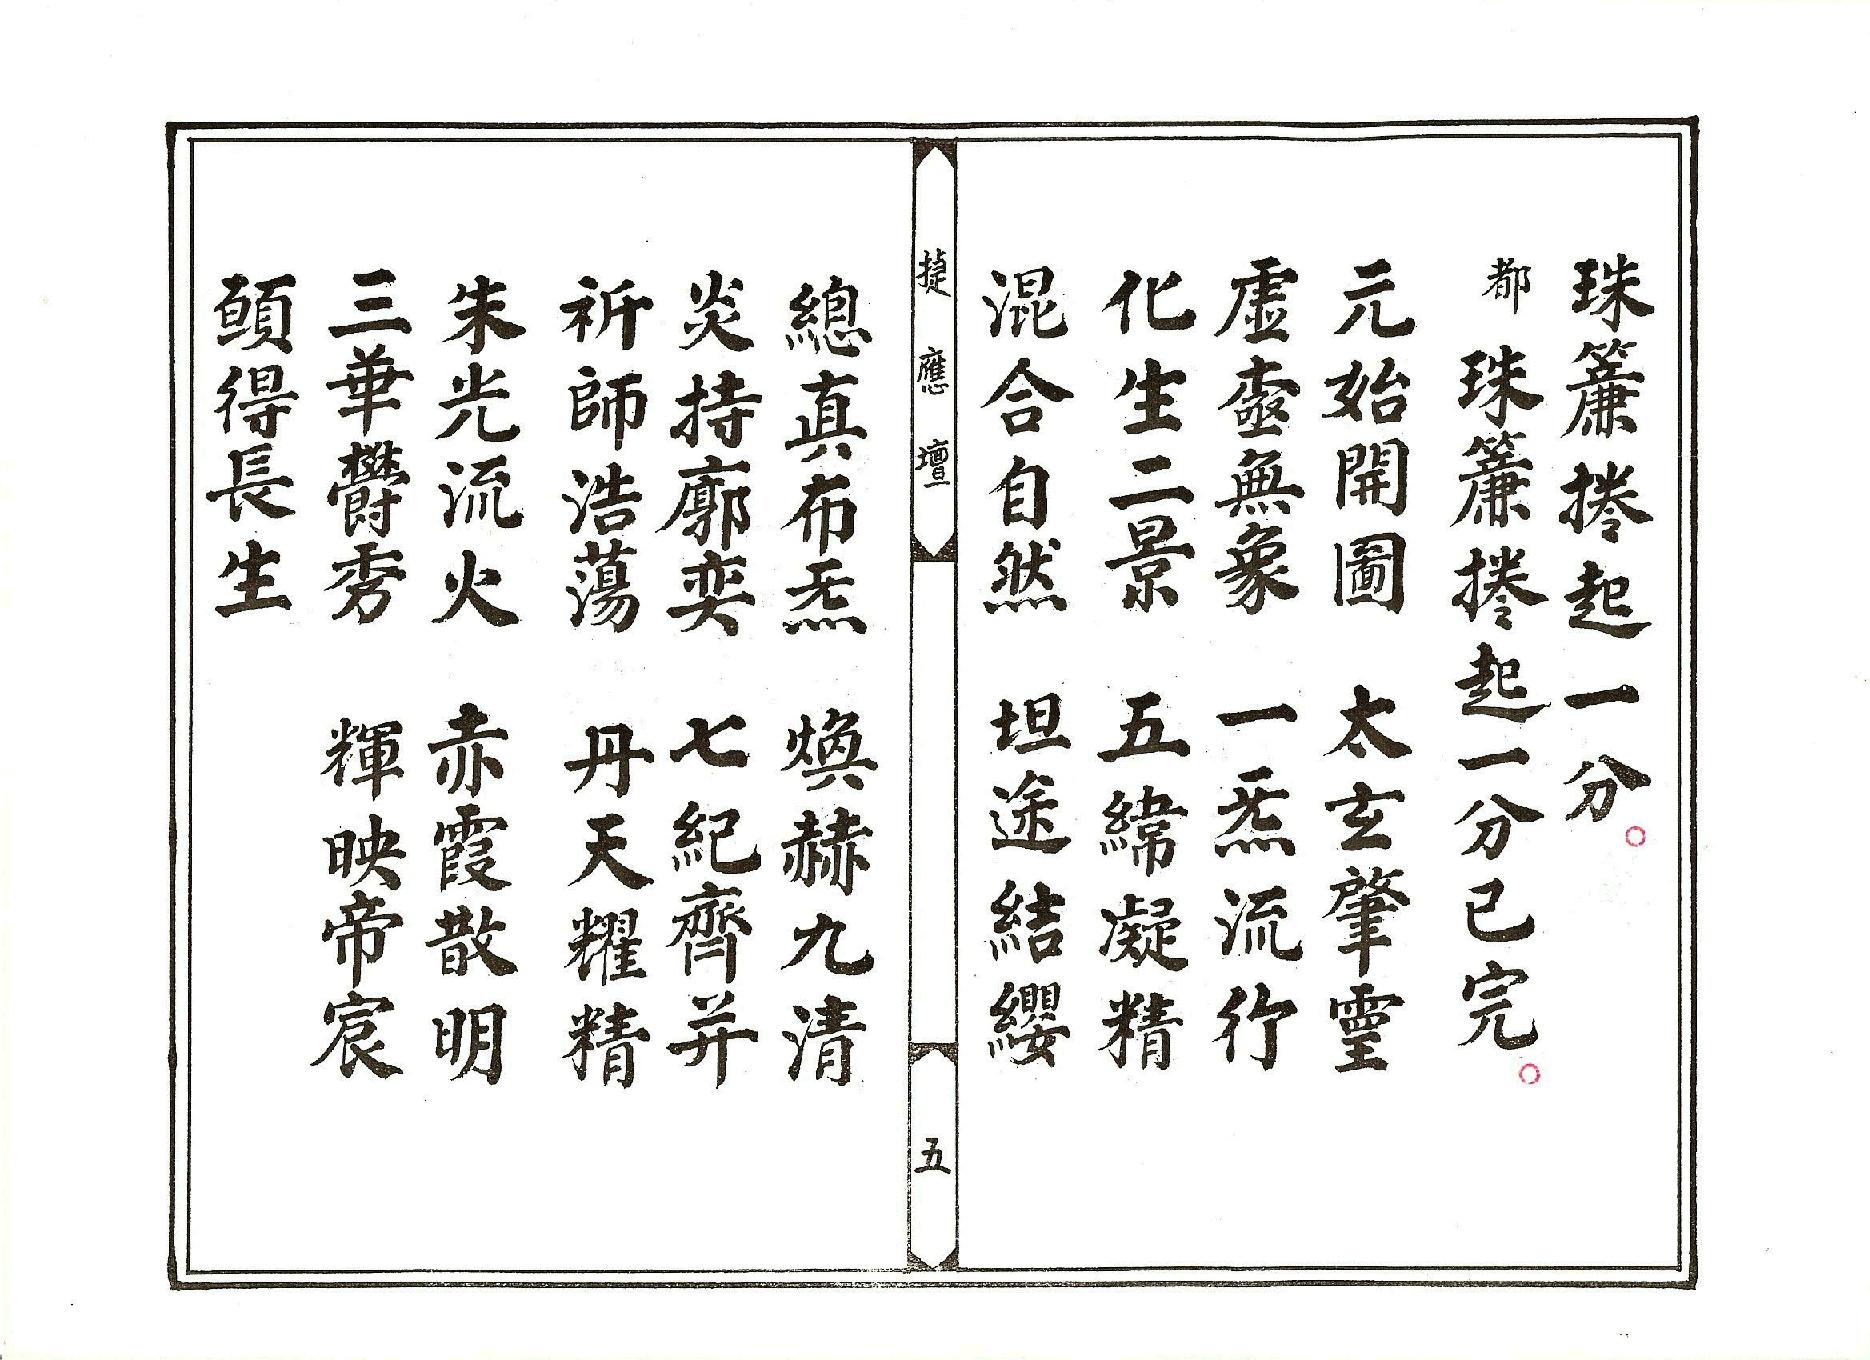 珠簾捲起一分。
都 珠簾捲起一分已完。
元始開圖 太玄肇靈
虛壺無象 一炁流行
化生二景 五緯凝精
混合自然 坦途結纓
捷應壇
五
總真布炁 煥赫九清
炎持廓奕 七紀齊并
祈師浩蕩 丹天耀精
朱光流火 赤霞散明
三華欝秀 輝映帝宸
願得長生